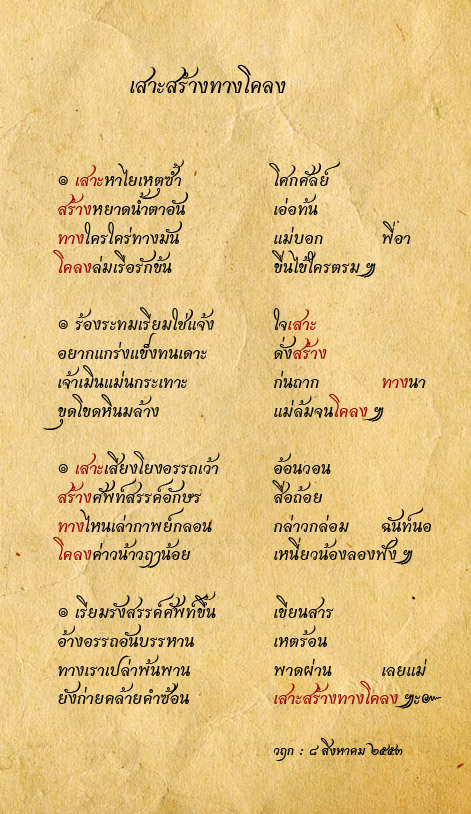 เสาะสร้างทางโคลง
๏ เสาะหาไยเหตุซ้ำ โศกศัลย์
สร้างหยาดน้ำตาอัน เอ่อท้น
ทางใครใคร่ทางมัน แม่บอก พี่อา
โคลงล่มเรือรักข้น ขื่นไข้ใครตรม ฯ
๏ ร้องระทมเรียมใช่แจ้ง ใจเสาะ
อยากแกร่งแข็งทนเดาะ ดั่งสร้าง
เจ้าเมินแม่นกระเทาะ ก่นถาก ทางนา
ขุดโขดหินมล้าง แม่ล้มจนโคลง ฯ
๏ เสาะเสียงโยงอรรถเว้า อ้อนวอน
สร้างศัพท์สรรค์อักษร สื่อถ้อย
ทางไหนเล่ากาพย์กลอน กล่าวกล่อม ฉันท์นอ
โคลงค่าวน้าวฤๅน้อย เหนี่ยวน้องลองฟัง ฯ
๏ เรียมรังสรรค์ศัพท์ขึ้น เขียนสาร
อ้างอรรถอันบรรหาน เหตร้อน
ทางเราเปล่าพ้นพาน พาดผ่าน เลยแม่
ยังก่ายคล้ายคำซ้อน เสาะสร้างทางโคลง ฯะ๛
วฤก : ๘ สิงหาคม ๒๕๕๓